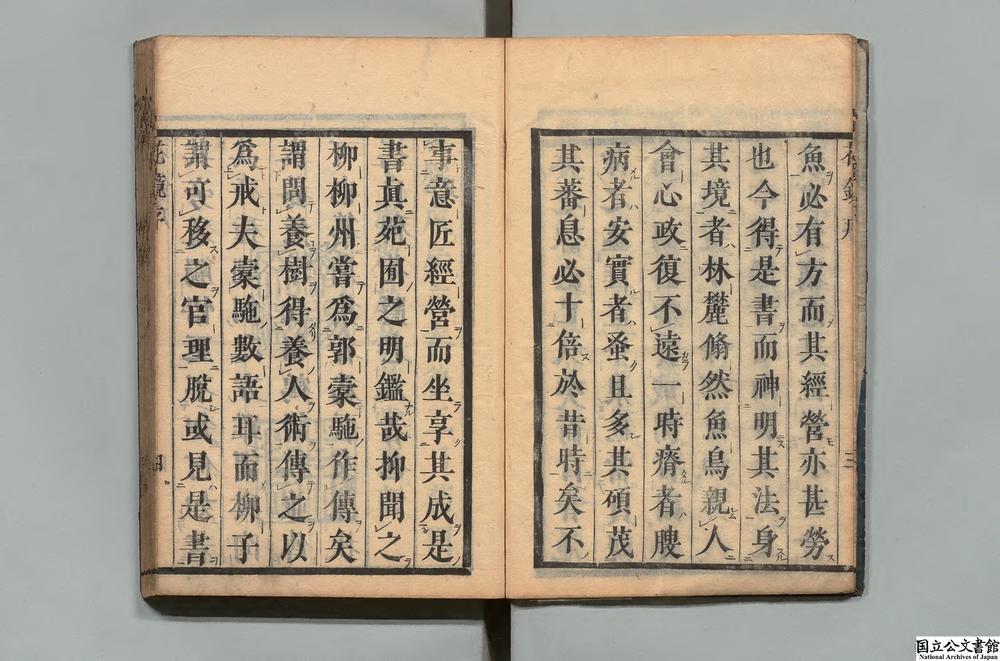 魚必有方而其經營亦甚勞
也今得是書而神明其法身
其境者林麓翛然魚鳥親人
會心政復不遠一時瘠者腴
病者安實者蚤且多其碩茂
其蕃息必十倍於昔時矣不
事意匠經營而坐享其成是
書眞苑囿之明鑑哉抑聞之
柳柳州嘗爲郭橐駞作傳矣
謂問養樹得養人術傳之以
爲戒夫橐駞數語耳而柳子
謂可移之官理脫或見是書
国立公文書館
National Archives of Japan